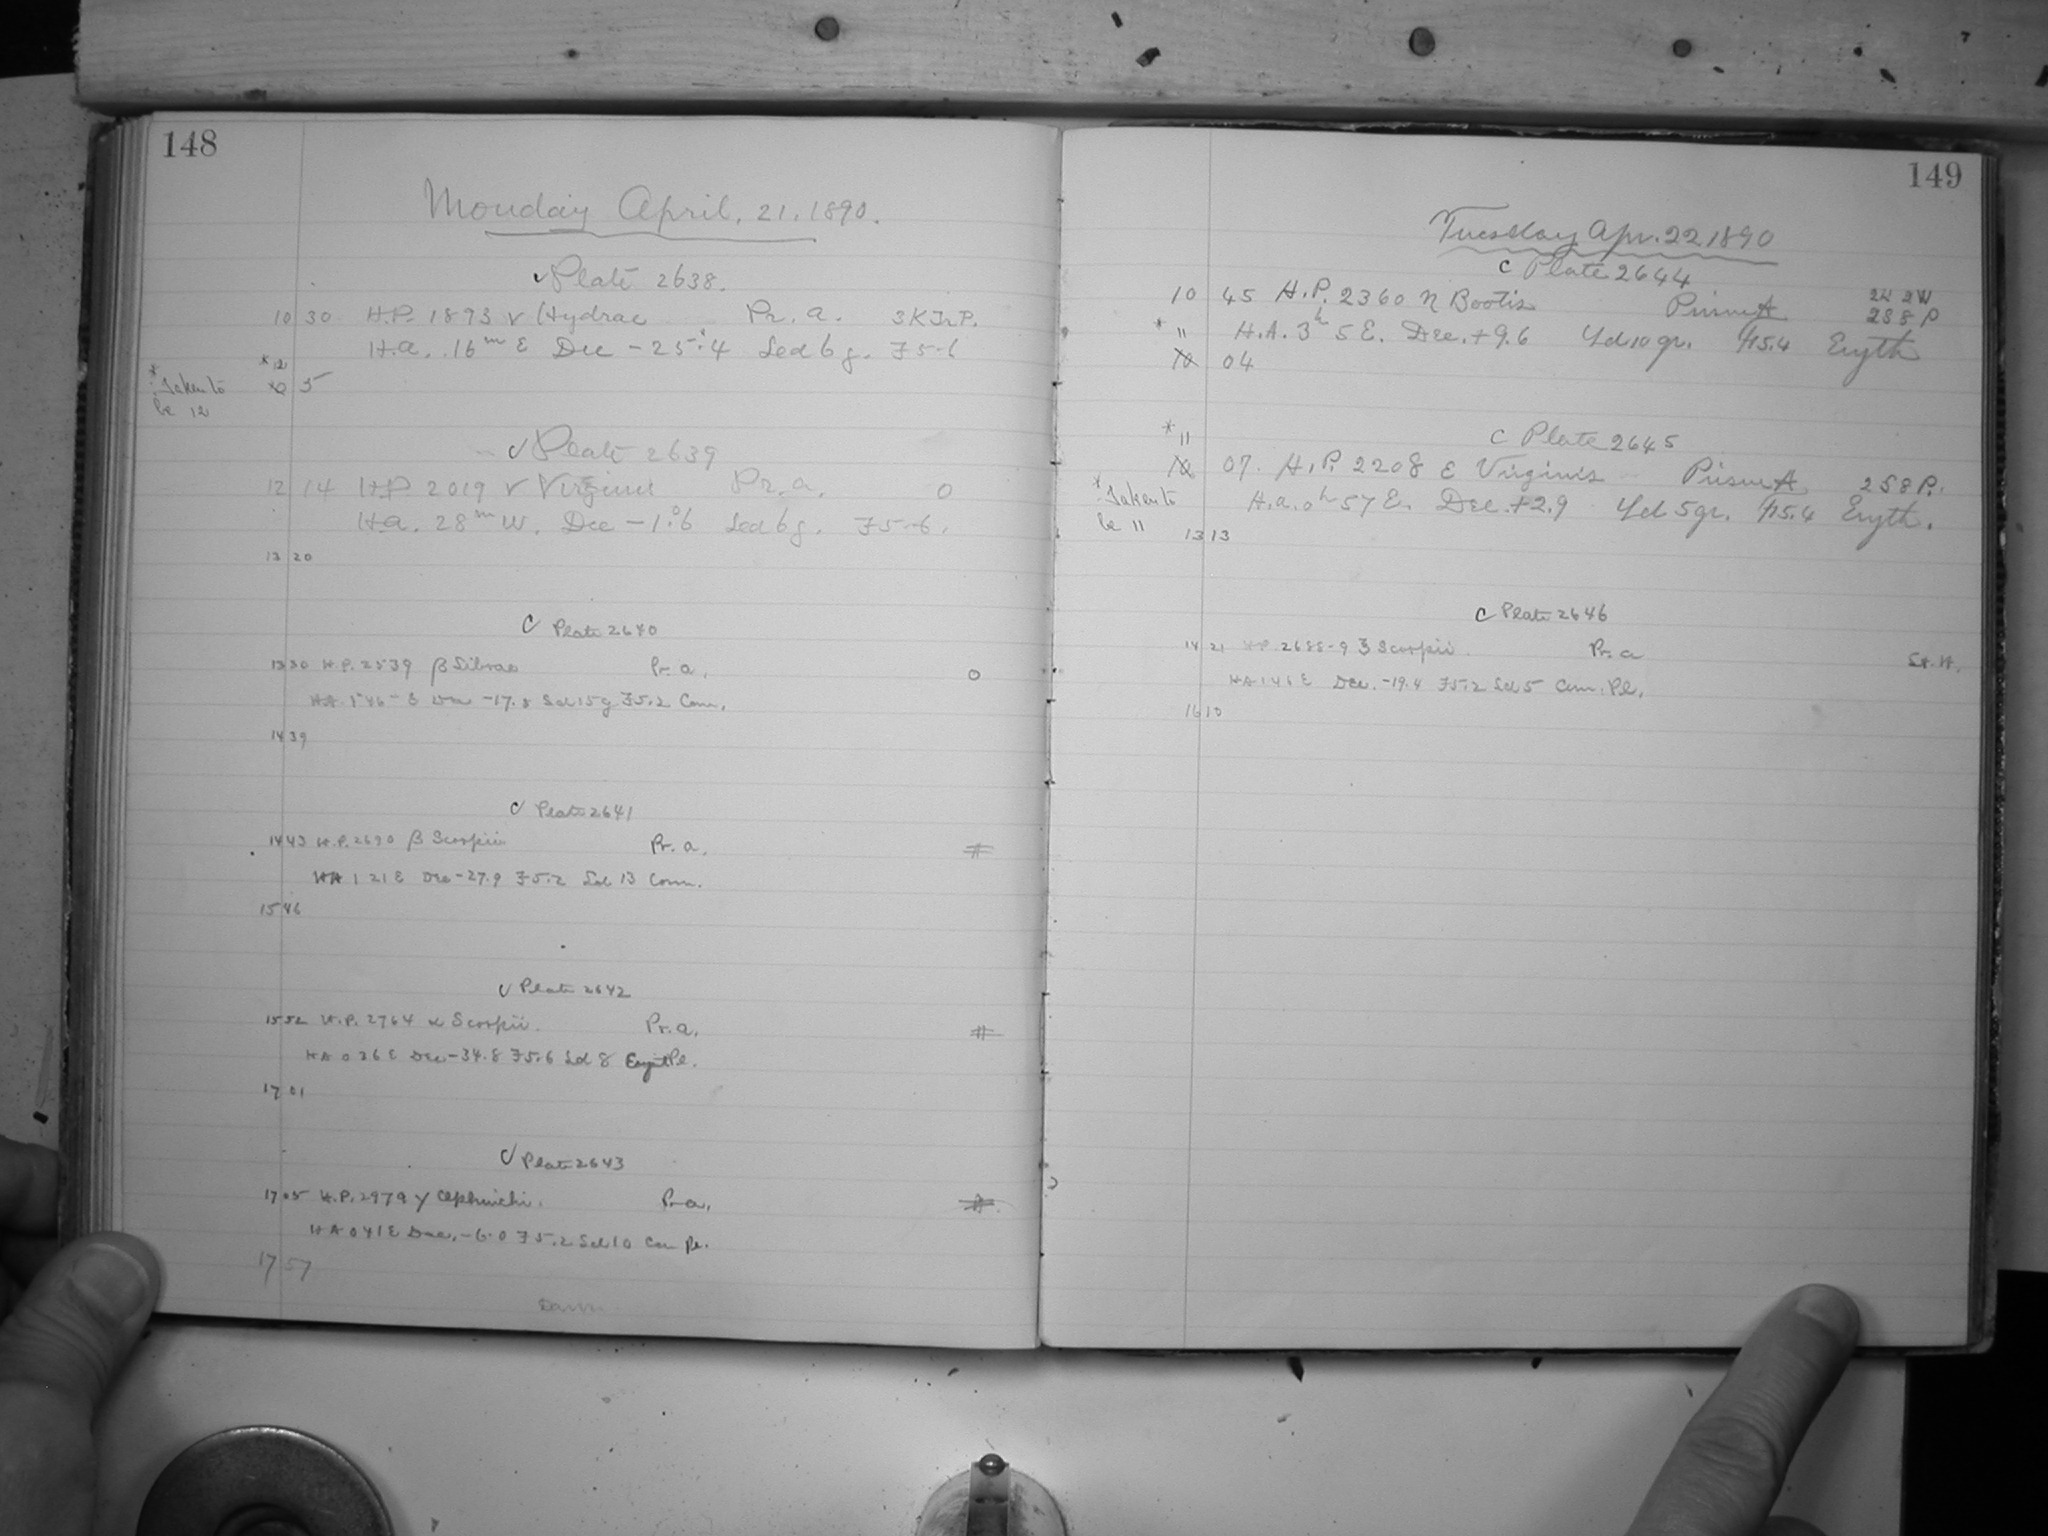 148
Monday April, 21. 1890.
Plate 2638.
10 30 H.P. 1893 ν Hydrae Pr. a. 3K Tr P.
H.a. .16m E Dec -25°.4 Led 6g. F5.6
* 12
* 5
* Taken to
be 12
Plate 2639
12 14 H.P. 2019 ν Virginis Pr. a. 0
H.a. 28m W. Dec -1°.6 Led 6g. F5.6.
13 20
Plate 2640
13 30 H.P. 2539 β Librae Pr. a. 0
HA. 1 46 E Dec -17.8 Sed 15g F5.2 Com.
14 39
Plate 2641
14 43 H.P. 2690 β Scorpii Pr. a.
HA 1 21 E Dec -27.9 F5.2 Sed 13 Com.
15 46
Plate 2642
15 52 H.P. 2764 α Scorpii. Pr. a.
HA 0 36 E Dec -34.8 F5.6 Sed 8 Eryt Pl.
17 01
Plate 2643
17 05 H.P. 2979 γ Ophiuchi. Pr. a.
HA 0 41 E Dec. -6.0 F5.2 Sed 10 Com Pl.
17 57
Dawn
149
Tuesday Apr. 22 1890
c Plate 2644
10 45 H.P. 2360 η Bootis Prism A 2K 2W
258 P
* 11 H.A. 3h 5 E. Dec. +9.6 Yd 10 gr. F15.4 Eryth
10 04
* 11
c Plate 2645
10 07. H.P. 2208 ε Virginis Prism A 258 P.
* Taken to
be 11
H.a. 0h 57 E. Dec. +2.9 Yd 5 gr. F15.4 Eryth.
13 13
c Plate 2646
14 21 H.P. 2688-9 ξ Scorpii Pr. a St. W.
HA 1 46 E Dec. -19.4 F5.2 Sed 5 Com. Pl.
16 10